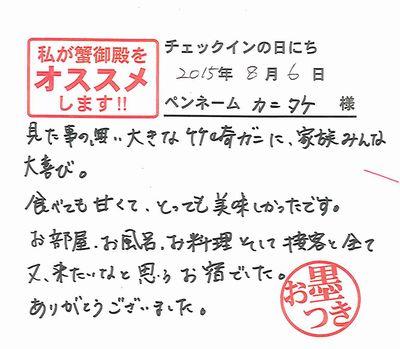 私が蟹御殿を
オススメ
します!!
チェックインの日にち
2015年 8月 6日
ペンネーム カニタケ 様
見た事の無い大きな竹崎ガニに、家族みんな
大喜び。
食べても甘くて、とっても美味しかったです。
お部屋、お風呂、お料理そして接客と全て
又、来たいなと思うお宿でした。
ありがとうございました。
お墨つき